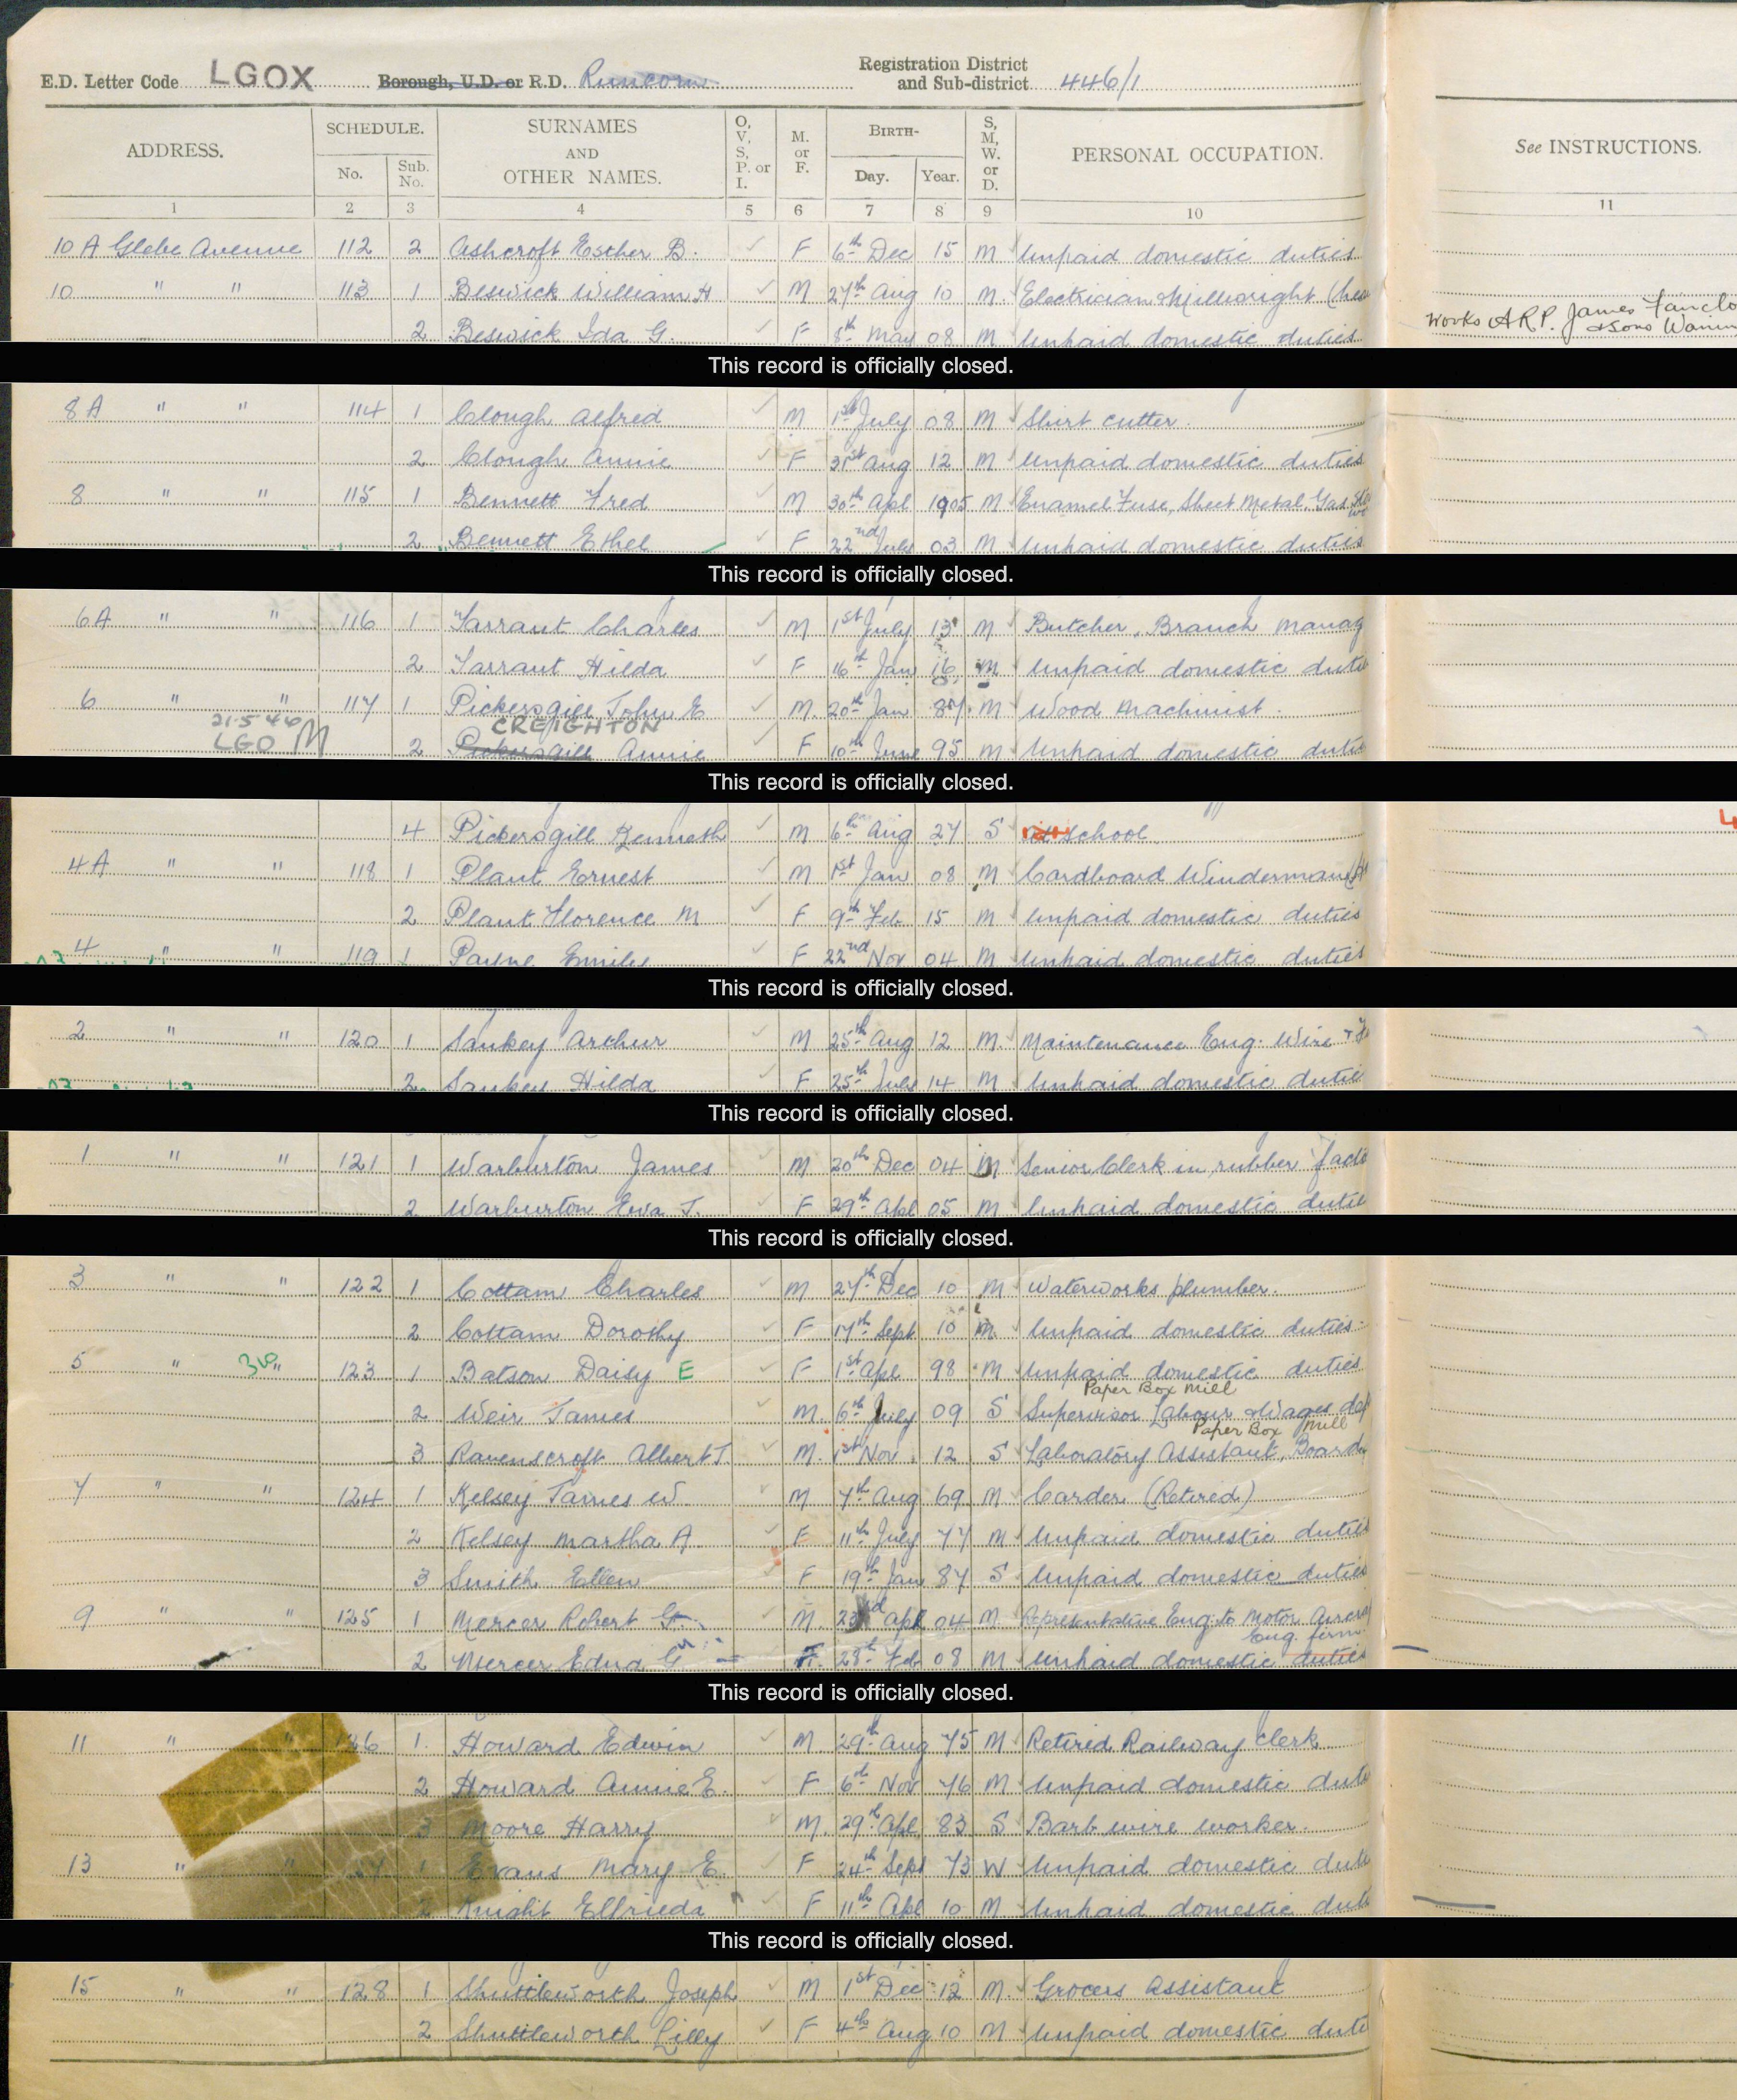 E.D. Letter Code LGOX Borough, U.D. or R.D. Runcorn Registration District and Sub-district 446/1
ADDRESS. SCHEDULE. No. Sub. No. SURNAMES AND OTHER NAMES. O, V, S, P. or I. M. or F. BIRTH- Day. Year. S, M, W. or D. PERSONAL OCCUPATION. See INSTRUCTIONS.
1 2 3 4 5 6 7 8 9 10 11
10 A Glebe Avenue 112 2 Ashcroft Esther B. F 6th Dec 15 M Unpaid domestic duties
10 " " 113 1 Beswick William H M 27th Aug 10 M Electrician & Millwright
Works ARP. James & Sons
2 Beswick Ida G. F 8th May 08 M Unpaid domestic duties
This record is officially closed.
8A " " 114 1 Clough Alfred M 1st July 08 M Shirt cutter.
2 Clough Annie F 31st Aug 12 M Unpaid domestic duties
8 " " 115 1 Bennett Fred M 30th Apl 1905 M Enamel Fuse, Sheet Metal, Gas
2 Bennett Ethel F 22nd July 03 M Unpaid domestic duties
This record is officially closed.
6A " " 116 1 Tarrant Charles M 1st July 13 M Butcher, Branch Manag
2 Tarrant Hilda F 16th Jan 16 M Unpaid domestic dutie
6 " " 117 1 Pickersgill John E M. 20th Jan 87 M Wood Machinist.
21.5.46 CREIGHTON
LGO M 2 Pickersgill Annie F 10th June 95 M Unpaid domestic dutie
This record is officially closed.
4 Pickersgill Kenneth M 6th Aug 27 S at school
4A " " 118 1 Plant Ernest M 1st Jan 08 M Cardboard Winderman
2 Plant Florence M F 9th Feb 15 M Unpaid domestic duties
4 " " 119 1 Payne Emily F 22nd Nov 04 M Unpaid domestic duties
This record is officially closed.
2 " " 120 1 Sankey Arthur M 25th Aug 12 M. Maintenance Eng. Wire
2 Sankey Hilda F 25th July 14 M Unpaid domestic dutie
This record is officially closed.
1 " " 121 1 Warburton James M 20th Dec 04 M Senior Clerk in rubber facto
2 Warburton Eva J. F 29th Apl 05 M Unpaid domestic dutie
This record is officially closed.
3 " " 122 1 Cottam Charles M 27th Dec 10 M Waterworks plumber.
2 Cottam Dorothy F 17th Sept 10 M Unpaid domestic duties.
5 " 30 " 123 1 Batson Daisy E F 1st Apl 98 M Unpaid domestic duties
Paper Box Mill
2 Weir James M. 6th July 09 S Supervisor Labour & Wages dep
Paper Box Mill
3 Ravenscroft Albert J. M. 1st Nov. 12 S Laboratory Assistant, Board
7 " " 124 1 Kelsey James W. M 7th Aug 69 M Carder (Retired)
2 Kelsey Martha A F 11th July 77 M Unpaid domestic duties
3 Smith Ellen F 19th Jan 87 S Unpaid domestic duties
9 " " 125 1 Mercer Robert G. M. 23rd Apl 04 M Representative Eng. to Motor Aircra
Eng. firm
2 Mercer Edna G F. 28th Feb 08 M Unpaid domestic duties
This record is officially closed.
11 " " 126 1. Howard Edwin M. 29th Aug 75 M Retired Railway Clerk
2 Howard Annie E. F 6th Nov 76 M Unpaid domestic duti
3 Moore Harry M. 29th Apl 83 S Barb wire worker.
13 " " 1 Evans Mary E. F 24th Sept 73 W Unpaid domestic duti
2 Knight Elfrieda F 11th Apl 10 M Unpaid domestic duti
This record is officially closed.
15 " " 128 1 Shuttleworth Joseph M 1st Dec 12 M. Grocers Assistant
2 Shuttleworth Lilly F 4th Aug 10 M Unpaid domestic duti